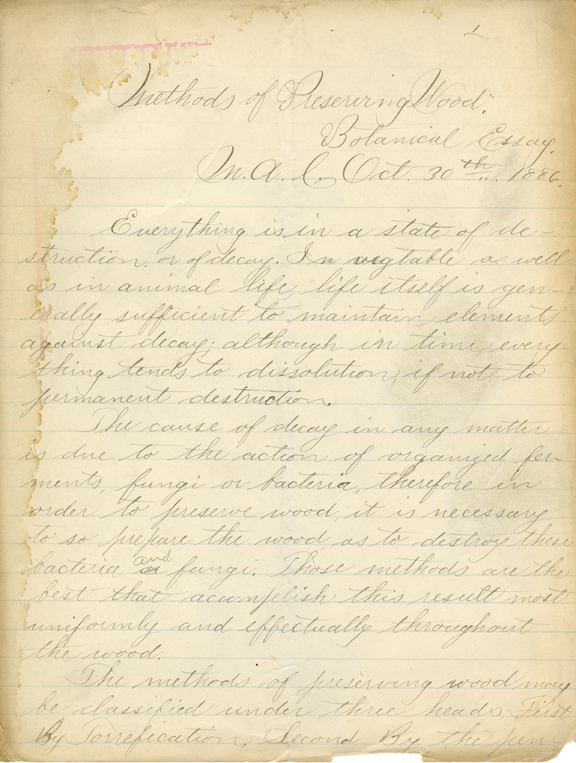 1
"Methods of Preserving Wood".
Botanical Essay.
M. A. C. Oct. 30th 1886.
Everything is in a state of de-
struction or of decay. In vegtable as well
as in animal life, life itself is gen-
erally sufficient to maintain elements
against decay; although in time, every-
thing tends to dissolution, if not to
permanent destruction.
The cause of decay in any matter
is due to the action of organized fer-
ments, fungi or bacteria, therefore in
order to preserve wood, it is necessary
to so prepare the wood, as to destroy these
bacteria and fungi. Those methods are the
best that acomplish this result most
uniformly and effectually throughout
the wood.
The methods of preserving wood may
be classified under three heads First
By Torrefication, Second By the pen-